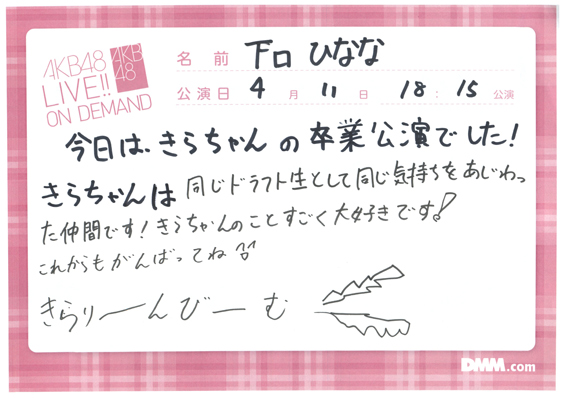 AKB48
LIVE!!
ON DEMAND
AKB
48
名前 下口 ひなな
公演日 4 月 11 日 18:15 公演
今日は、きらちゃんの卒業公演でした!
きらちゃんは同じドラフト生として同じ気持ちをあじわっ
た仲間です!きらちゃんのことすごく大好きです!
これからもがんばってね
きらりーんびーむ
DMM.com